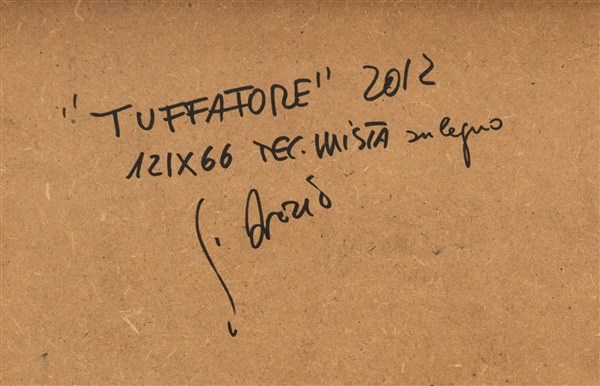 "TUFFATORE" 2012
121X66 TEC. MISTA su legno